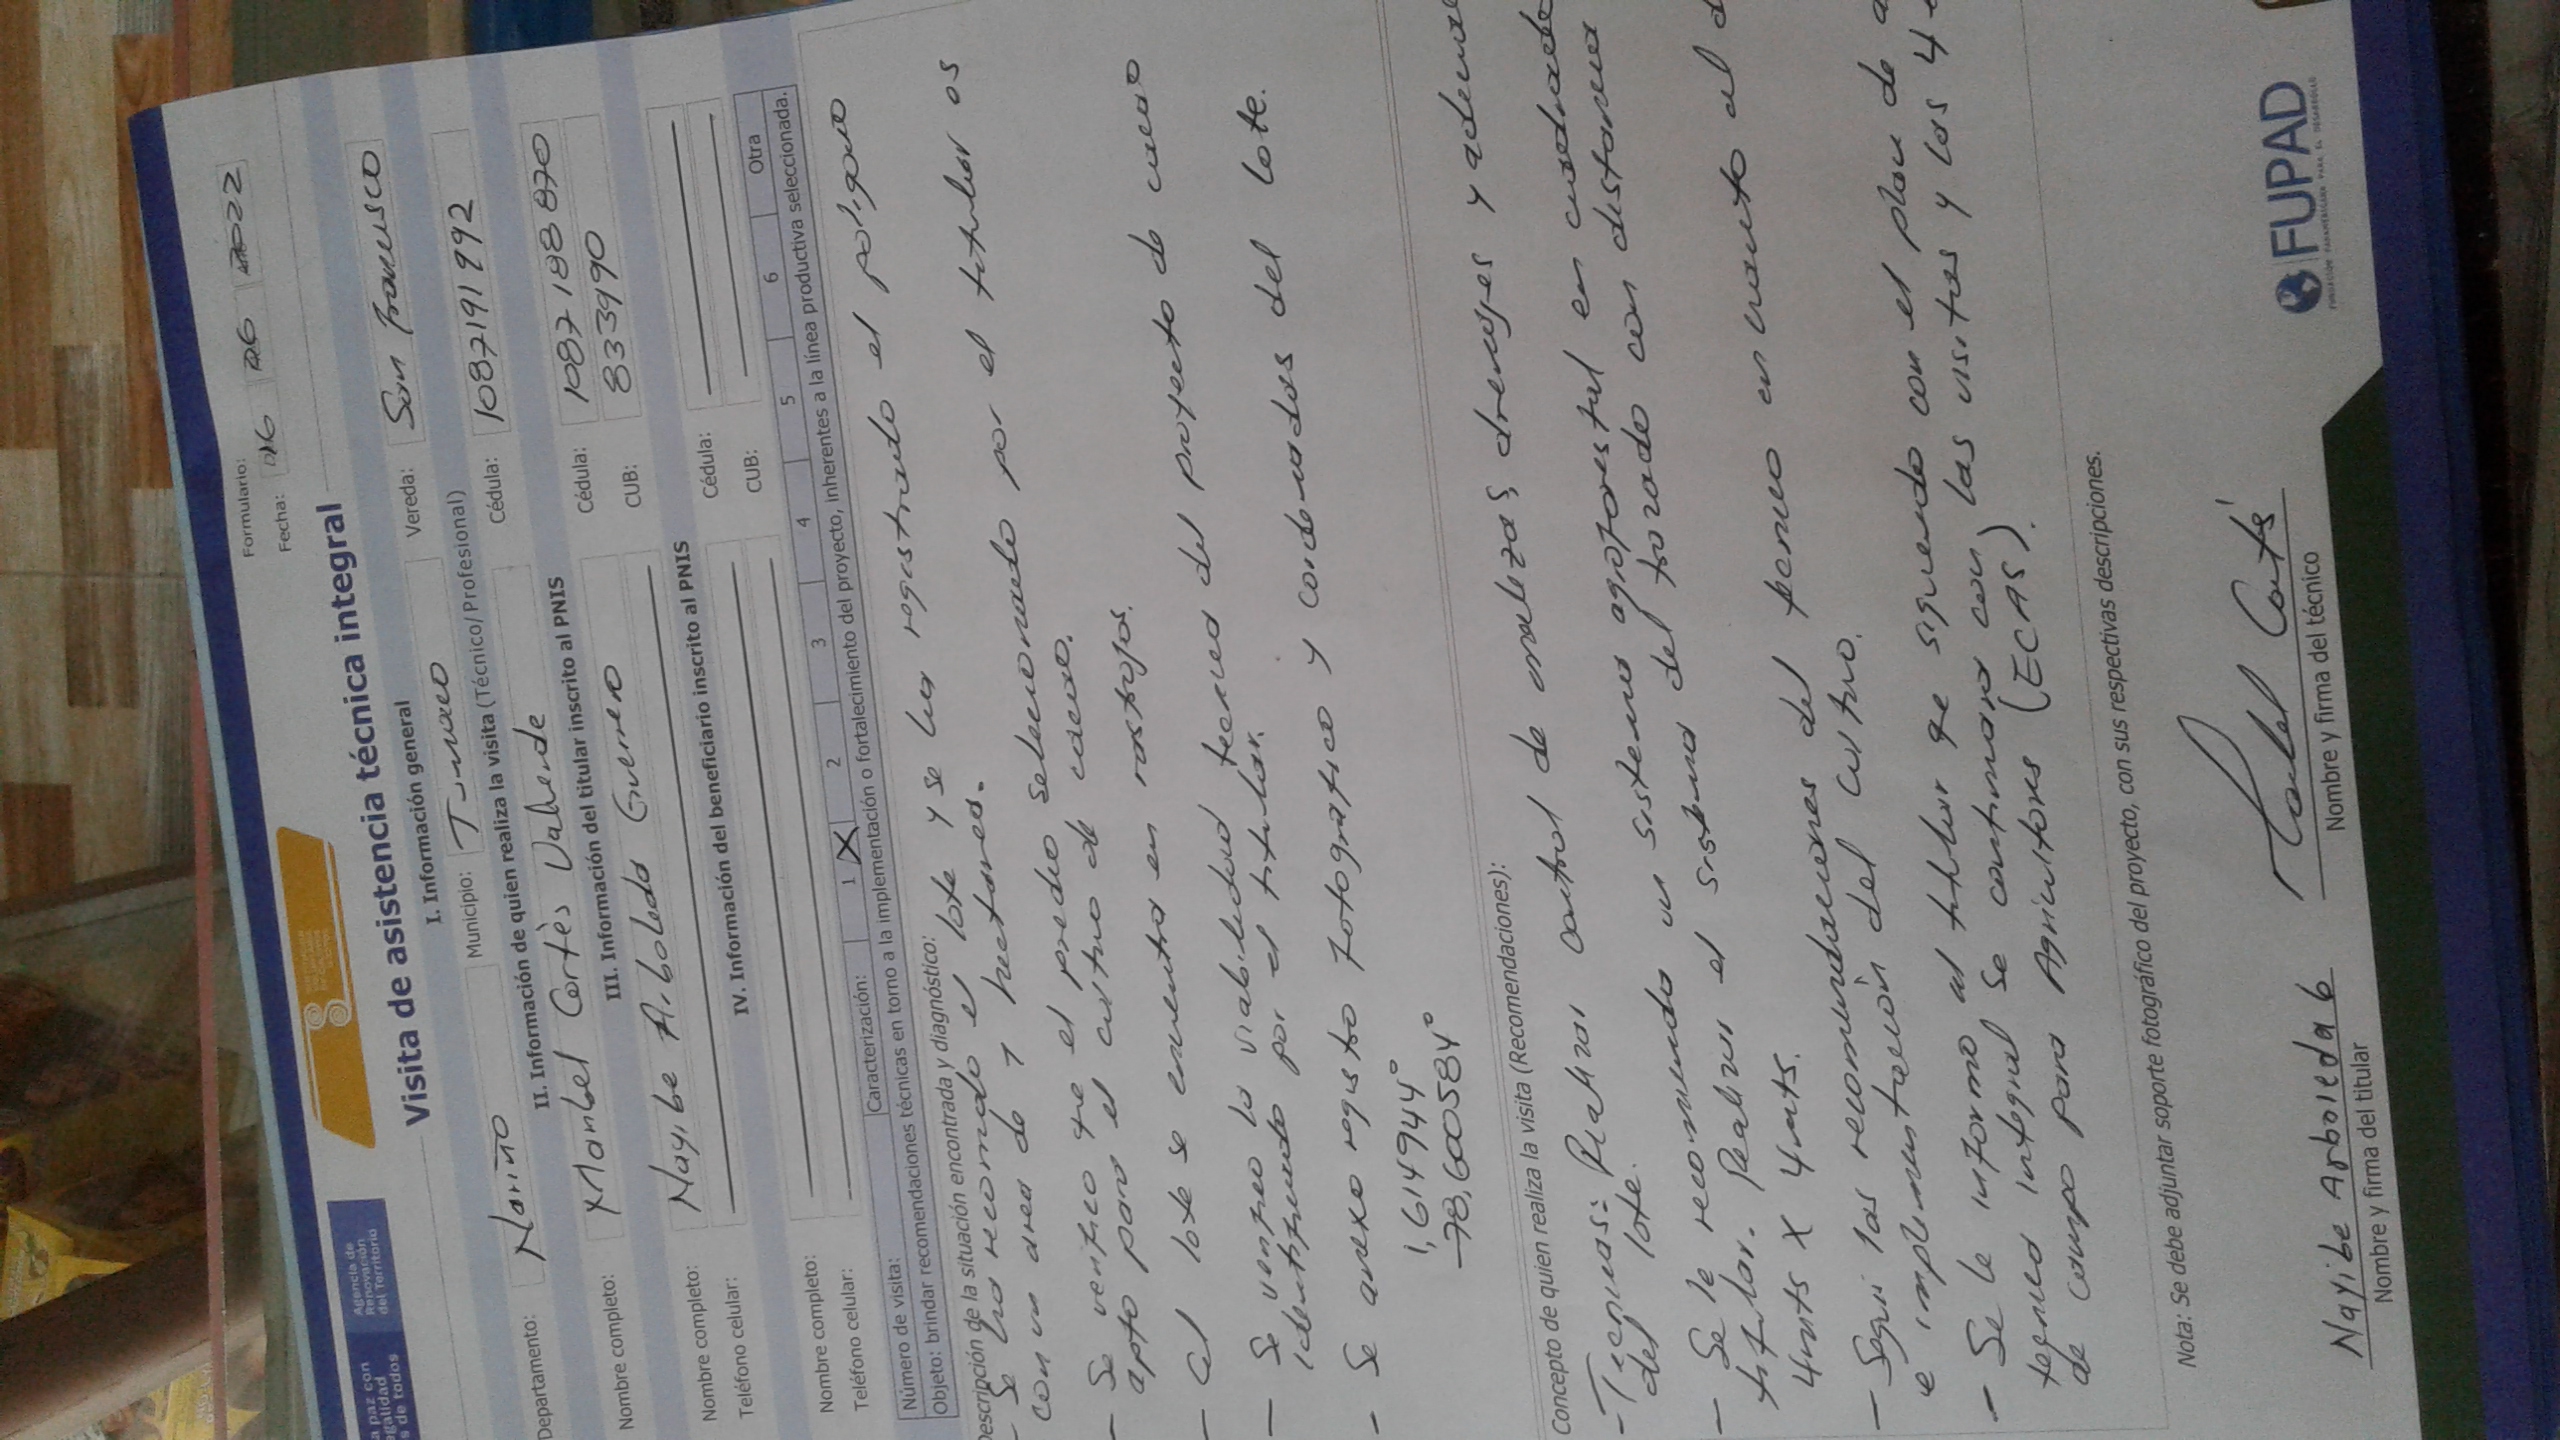 a paz con
egalidad
s de todos
Agencia de
Renovación
del Territorio
Formulario:
Fecha: 06 06 2022
Visita de asistencia técnica integral
I. Información general
Departamento: Nariño Municipio: Tumaco Vereda: San Francisco
II. Información de quien realiza la visita (Técnico/Profesional)
Nombre completo: Maribel Cortès Valverde Cédula: 1087191992
III. Información del titular inscrito al PNIS
Nombre completo: Nayibe Arboleda Guerrero Cédula: 1087188870
Teléfono celular: CUB: 833990
IV. Información del beneficiario inscrito al PNIS
Nombre completo: Cédula:
Teléfono celular: CUB:
Número de visita: Caracterización: 1 X 2 3 4 5 6 Otra
Objeto: brindar recomendaciones técnicas en torno a la implementación o fortalecimiento del proyecto, inherentes a la línea productiva seleccionada.
Descripción de la situación encontrada y diagnóstico:
- Se ha recorrido el lote y se ha registrado el poligono
con un area de 1 hectarea.
- Se verifico que el predio seleccionado por el titular es
apto para el cultivo de cacao.
- el lote se encuentra en rastrojos.
- Se verifico la viabilidad tecnica del proyecto de cacao
identificado por el titular.
- Se anexo registro fotografico y cordenadas del lote.
1,614944°
-78,600584°
Concepto de quien realiza la visita (Recomendaciones):
- Tecnicas: Realizar control de maleza, drenajes y ademas
del lote.
- Se le recomienda un sistema agroforestal en cuadrado
titular. Realizar el sistema del trazado con distancia
4mts x 4mts.
- Seguir las recomendaciones del tecnico en cuanto al
e implementación del cultivo.
- Se le informo al titular que siguiendo con el plan de
tecnica integral se continuara con las visitas y las 4
de campo para Agricultores (ECAS).
Nota: Se debe adjuntar soporte fotográfico del proyecto, con sus respectivas descripciones.
Nayibe Arboleda G
Nombre y firma del titular
Maribel Cortés
Nombre y firma del técnico
FUPAD
FUNDACIÓN PANAMERICANA PARA EL DESARROLLO